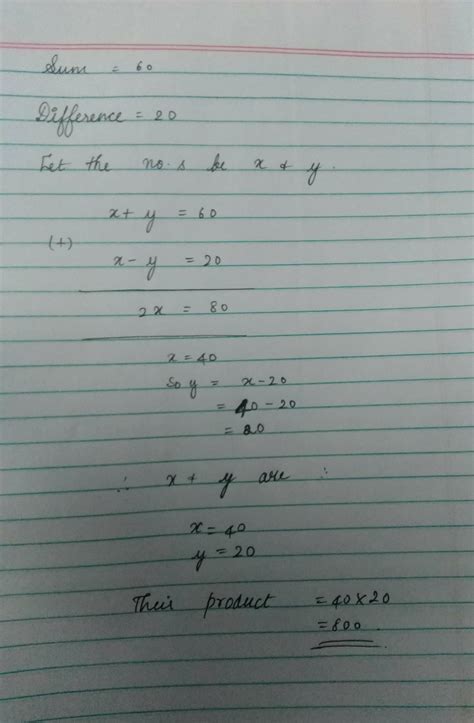 Sum = 60
Difference = 20
Let the no.s be x & y.
x + y = 60
(+)
x - y = 20
2x = 80
x = 40
So y = x - 20
= 40 - 20
= 20
∴ x & y are :
x = 40
y = 20
Their product = 40 X 20
= 800.